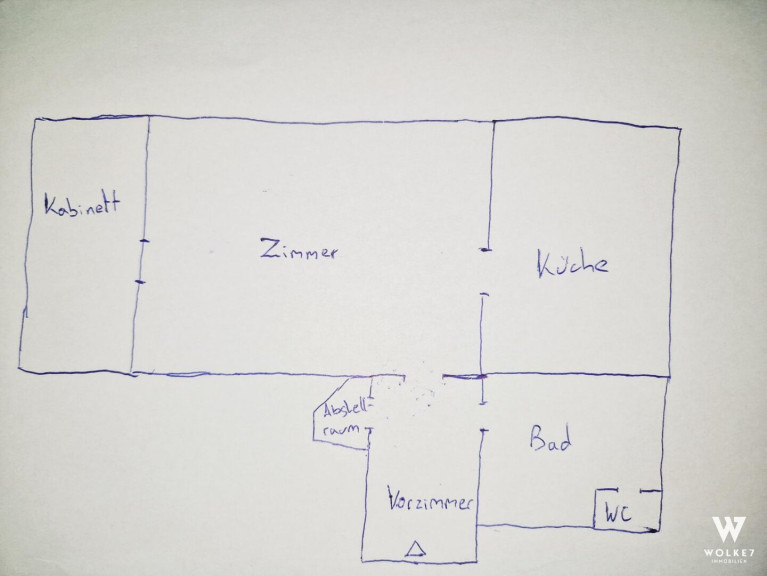 Kabinett
Zimmer
Küche
Abstell-
raum
Bad
Vorzimmer
WC
W
WOLKE7
IMMOBILIEN